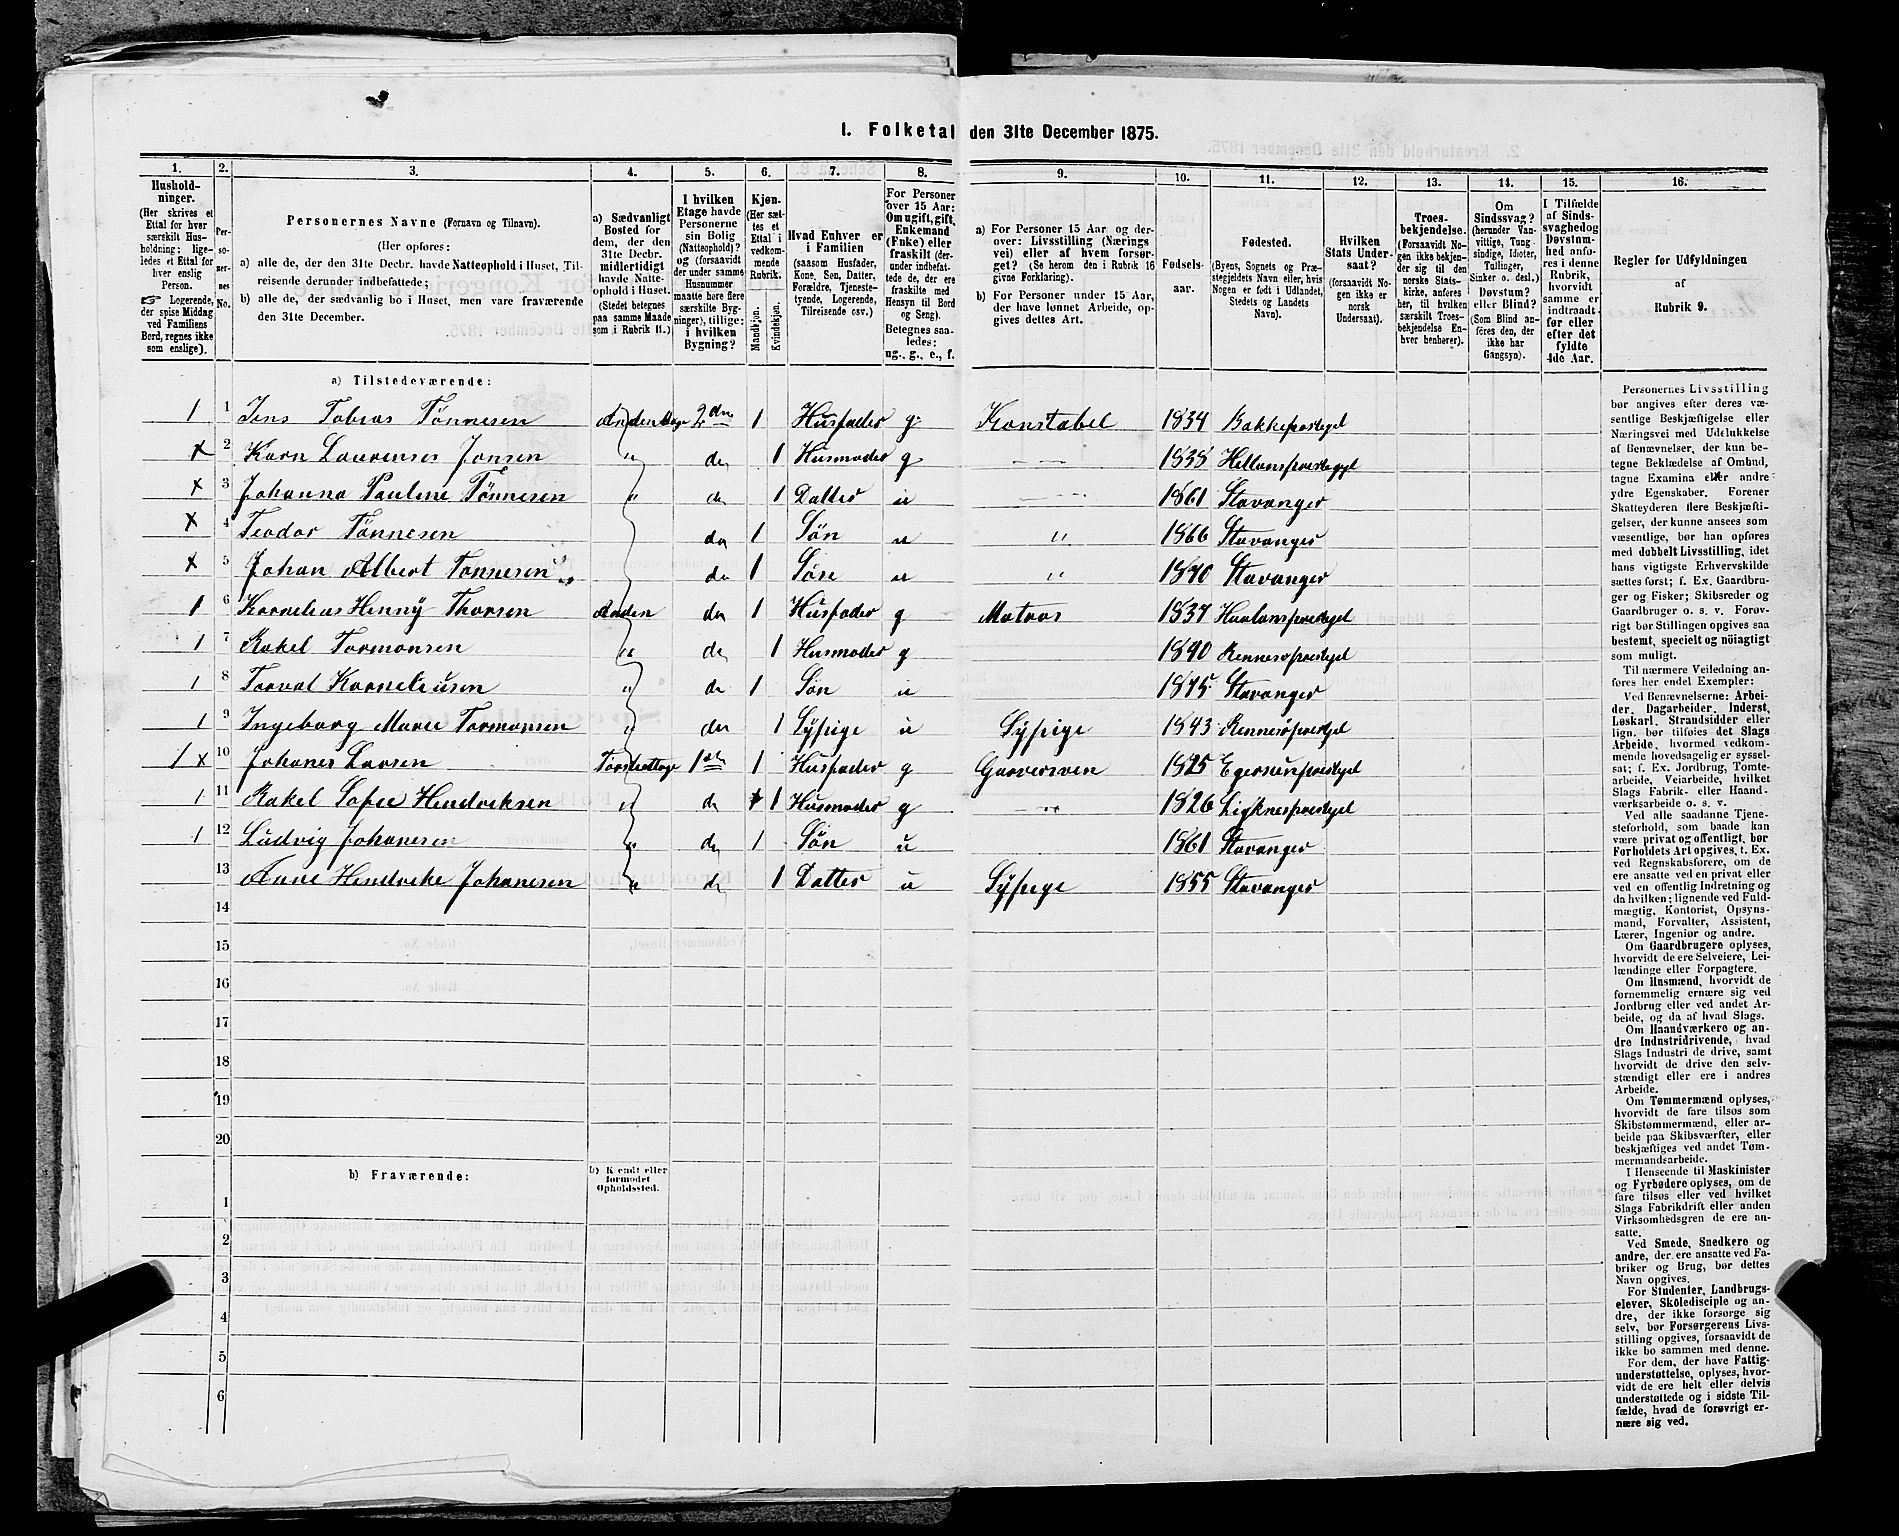 I. Folketal den 31te December 1875.
1. 2. 3. 4. 5. 6. 7. 8. 9. 10. 11. 12. 13. 14. 15. 16.
Husholdninger. (Her skrives et Ettal for hver særskilt Husholdning; ligeledes et Ettal for hver enslig Person. ☞ Logerende, der spise Middag ved Familiens Bord, regnes ikke som enslige).
Personernes No.
Personernes Navne (Fornavn og Tilnavn).
(Her opføres:
a) alle de, der den 31te Decbr. havde Natteophold i Huset, Tilreisende derunder indbefattede;
b) alle de, der sædvanlig bo i Huset, men vare fraværende den 31te December.
a) Sædvanligt Bosted for dem, der den 31te Decbr. midlertidigt havde Natteophold i Huset. (Stedet betegnes paa samme Maade som i Rubrik 11.)
I hvilken Etage havde Personerne sin Bolig (Natteophold)? og (forsaavidt der under samme Husnummer maatte høre flere særskilte Bygninger), tillige: i hvilken Bygning?
Kjøn. (Her sættes et Ettal i vedkommende Rubrik. Mandkjøn. Kvindekjøn.
Hvad Enhver er i Familien (saasom Husfader, Kone, Søn, Datter, Forældre, Tjenestetyende, Logerende, Tilreisende osv.)
For Personer over 15 Aar: Om ugift, gift, Enkemand (Enke) eller fraskilt (derunder indbefattede de, der ere fraskilte med Hensyn til Bord og Seng). Betegnes saaledes: ug., g., e., f.
a) For Personer 15 Aar og derover: Livsstilling (Næringsvei) eller af hvem forsørget? (Se herom den i Rubrik 16 givne Forklaring).
b) For Personer under 15 Aar, der have lønnet Arbeide, opgives dettes Art.
Fødselsaar.
Fødested. (Byens, Sognets og Præstegjeldets Navn eller, hvis Nogen er født i Udlandet, Stedets og Landets Navn).
Hvilken Stats Undersaat? (forsaavidt Nogen ikke er norsk Undersaat).
Troesbekjendelse. (Forsaavidt Nogen ikke bekjender sig til den norske Statskirke, anføres her, til hvilken særskilt Troesbekjendelse Enhver henhører).
Om Sindssvag? (herunder Vanvittige, Tungsindige, Idioter, Tullinger, Sinker o. desl.) Døvstum? eller Blind? (Som Blind anføres den, der ikke har Gangsyn).
I Tilfælde af Sindssvaghed og Døvstumhed anføres i denne Rubrik, hvorvidt samme er indtraadt før eller efter det fyldte 4de Aar.
Regler for Udfyldningen af Rubrik 9.
a) Tilstedeværende:
1 1 Jens Tobias Tönnesen Anden Etage 2den 1 Husfader g Konstabel 1834 Bakkeprestegjel
x 2 Karn Laurense Jonsen " do 1 Husmoder g — 1838 Hellansprestegjel
x 3 Johanna Pauline Tönnesen " do 1 Datter u — 1861 Stavanger
x 4 Teodor Tönnesen do 1 Sön u " 1866 Stavanger
x 5 Johan Albert Tönnesen do 1 Sön u " 1870 Stavanger
1 6 Kornelius Henny Thorsen Anden do 1 Husfader g Matros 1837 Haalansprestegjel
1 7 Rakel Tormonsen " do 1 Husmoder g 1840 Rennesöprestegjel
1 8 Torval Korneliusen " do 1 Sön u 1875 Stavanger
1 9 Ingeborg Marie Tormonsen " do 1 Sÿpige u Sÿpige 1843 Rennesöprestegjel
1 x 10 Johanes Larsen Förste Etage 1ste 1 Husfader g Garversven 1825 Egersunprestegjel
1 11 Rakel Sofie Hendreksen " do 1 Husmoder g " 1826 Ligknesprestegjel
1 12 Ludvig Johanesen " do 1 Sön u 1861 Stavanger
13 Anne Hendreke Johanesen " do 1 Datter u Sÿpige 1855 Stavanger
14
15
16
17
18
19
20
b) Fraværende: b) Kjendt eller formodet Opholdssted.
1
2
3
4
5
6
Personernes Livsstilling
bør angives efter deres væ-
sentlige Beskjæftigelse eller
Næringsvei med Udelukkelse
af Benævnelser, der kun be-
tegne Beklædelse af Ombud,
tagne Examina eller andre
ydre Egenskaber. Forener
Skatteyderen flere Beskjæfti-
gelser, der kunne ansees som
væsentlige, bør han opføres
med dobbelt Livsstilling, idet
hans vigtigste Erhvervskilde
sættes først; f. Ex. Gaardbru-
ger og Fisker; Skibsreder og
Gaardbruger o. s. v. Forøv-
rigt bør Stillingen opgives saa
bestemt, specielt og nøiagtigt
som muligt.
Til nærmere Veiledning an-
føres her endel Exempler:
Ved Benævnelserne: Arbei-
der, Dagarbeider, Inderst,
Løskarl, Strandsidder eller
lign. bør tilføies det Slags
Arbeide, hvormed vedkom-
mende hovedsagelig er syssel-
sat; f. Ex. Jordbrug, Tomte-
arbeide, Veiarbeide, hvilket
Slags Fabrik- eller Haand-
værksarbeide o. s. v.
Ved alle saadanne Tjene-
steforhold, som baade kan
være privat og offentligt, bør
Forholdets Art opgives, t. Ex.
ved Regnskabsførere, om de
ere ansatte ved en privat eller
ved en offentlig Indretning og
da hvilken; lignende ved Fuld-
mægtig, Kontorist, Opsyns-
mand, Forvalter, Assistent,
Lærer, Ingeniør og andre.
Om Gaardbrugere oplyses,
hvorvidt de ere Selveiere, Lei-
lændinge eller Forpagtere.
Om Husmænd, hvorvidt de
fornemmelig ernære sig ved
Jordbrug eller ved andet Ar-
beide, og da af hvad Slags.
Om Haandværkere og an-
dre Industridrivende, hvad
Slags Industri de drive, samt
hvorvidt de drive den selv-
stændigt eller ere i andres
Arbeide.
Om Tømmermænd oplyses,
hvorvidt de fare tilsøs som
Skibstømmermænd, eller ar-
beide paa Skibsværfter, eller
beskjæftiges ved andet Tøm-
mermandsarbeide.
I Henseende til Maskinister
og Fyrbødere oplyses, om de
fare tilsøs eller ved hvilket
Slags Fabrikdrift eller anden
Virksomhedsgren de ere an-
satte.
Ved Smede, Snedkere og
andre, der ere ansatte ved Fa-
briker og Brug, bør dettes
Navn opgives.
For Studenter, Landbrugs-
elever, Skoledisciple og an-
dre, der ikke forsørge sig
selv, bør Forsørgerens Livs-
stilling opgives, forsaavidt de
ikke bo sammen med denne.
For dem, der have Fattig-
understøttelse, oplyses, hvor-
vidt de ere helt eller delvis
understøttede og i sidste Til-
fælde, hvad de forøvrigt er-
nære sig ved.